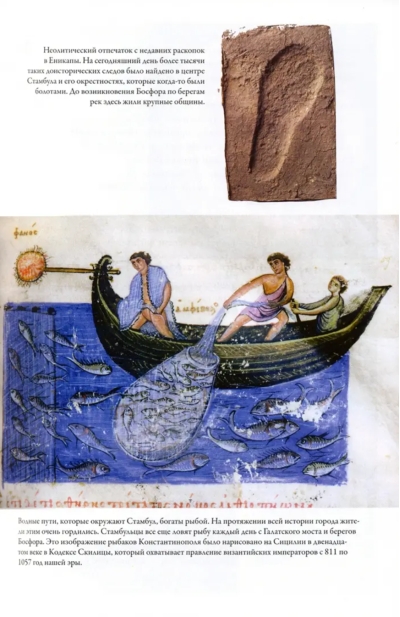 Неолитический отпечаток с недавних раскопок
в Еникапы. На сегодняшний день более тысячи
таких доисторических следов было найдено в центре
Стамбула и его окрестностях, которые когда-то были
болотами. До возникновения Босфора по берегам
рек здесь жили крупные общины.
Водные пути, которые окружают Стамбул, богаты рыбой. На протяжении всей истории города жите-
ли этим очень гордились. Стамбульцы все еще ловят рыбу каждый день с Галатского моста и берегов
Босфора. Это изображение рыбаков Константинополя было нарисовано на Сицилии в двенадца-
том веке в Кодексе Скилицы, который охватывает правление византийских императоров с 811 по
1057 год нашей эры.